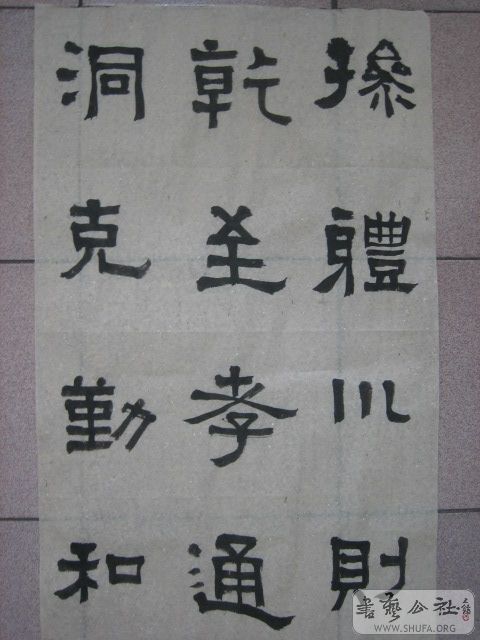 操體川則
乾至孝通
洞克勤和
書藝公社
WWW.SHUFA.ORG